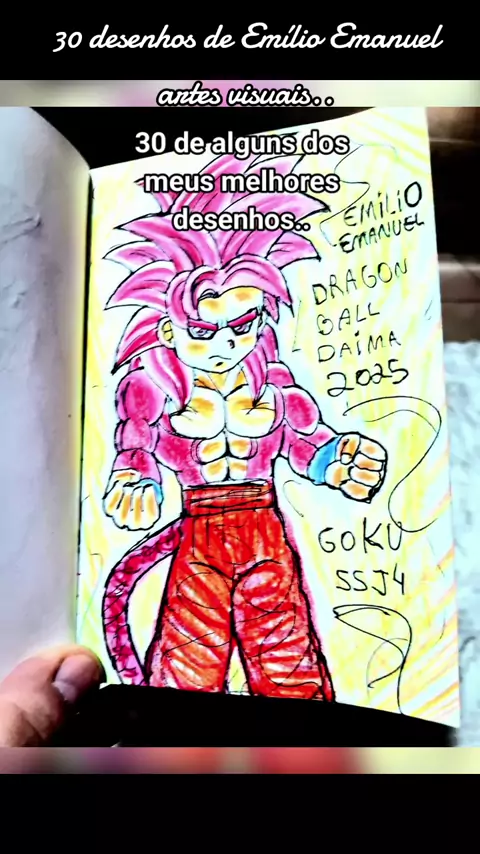 30 desenhos de Emílio Emanuel
artes visuais..
30 de alguns dos
meus melhores
desenhos..
EMILIO
EMANUEL
DRAGON
BALL
DAIMA
2025
GOKU
SSJ4